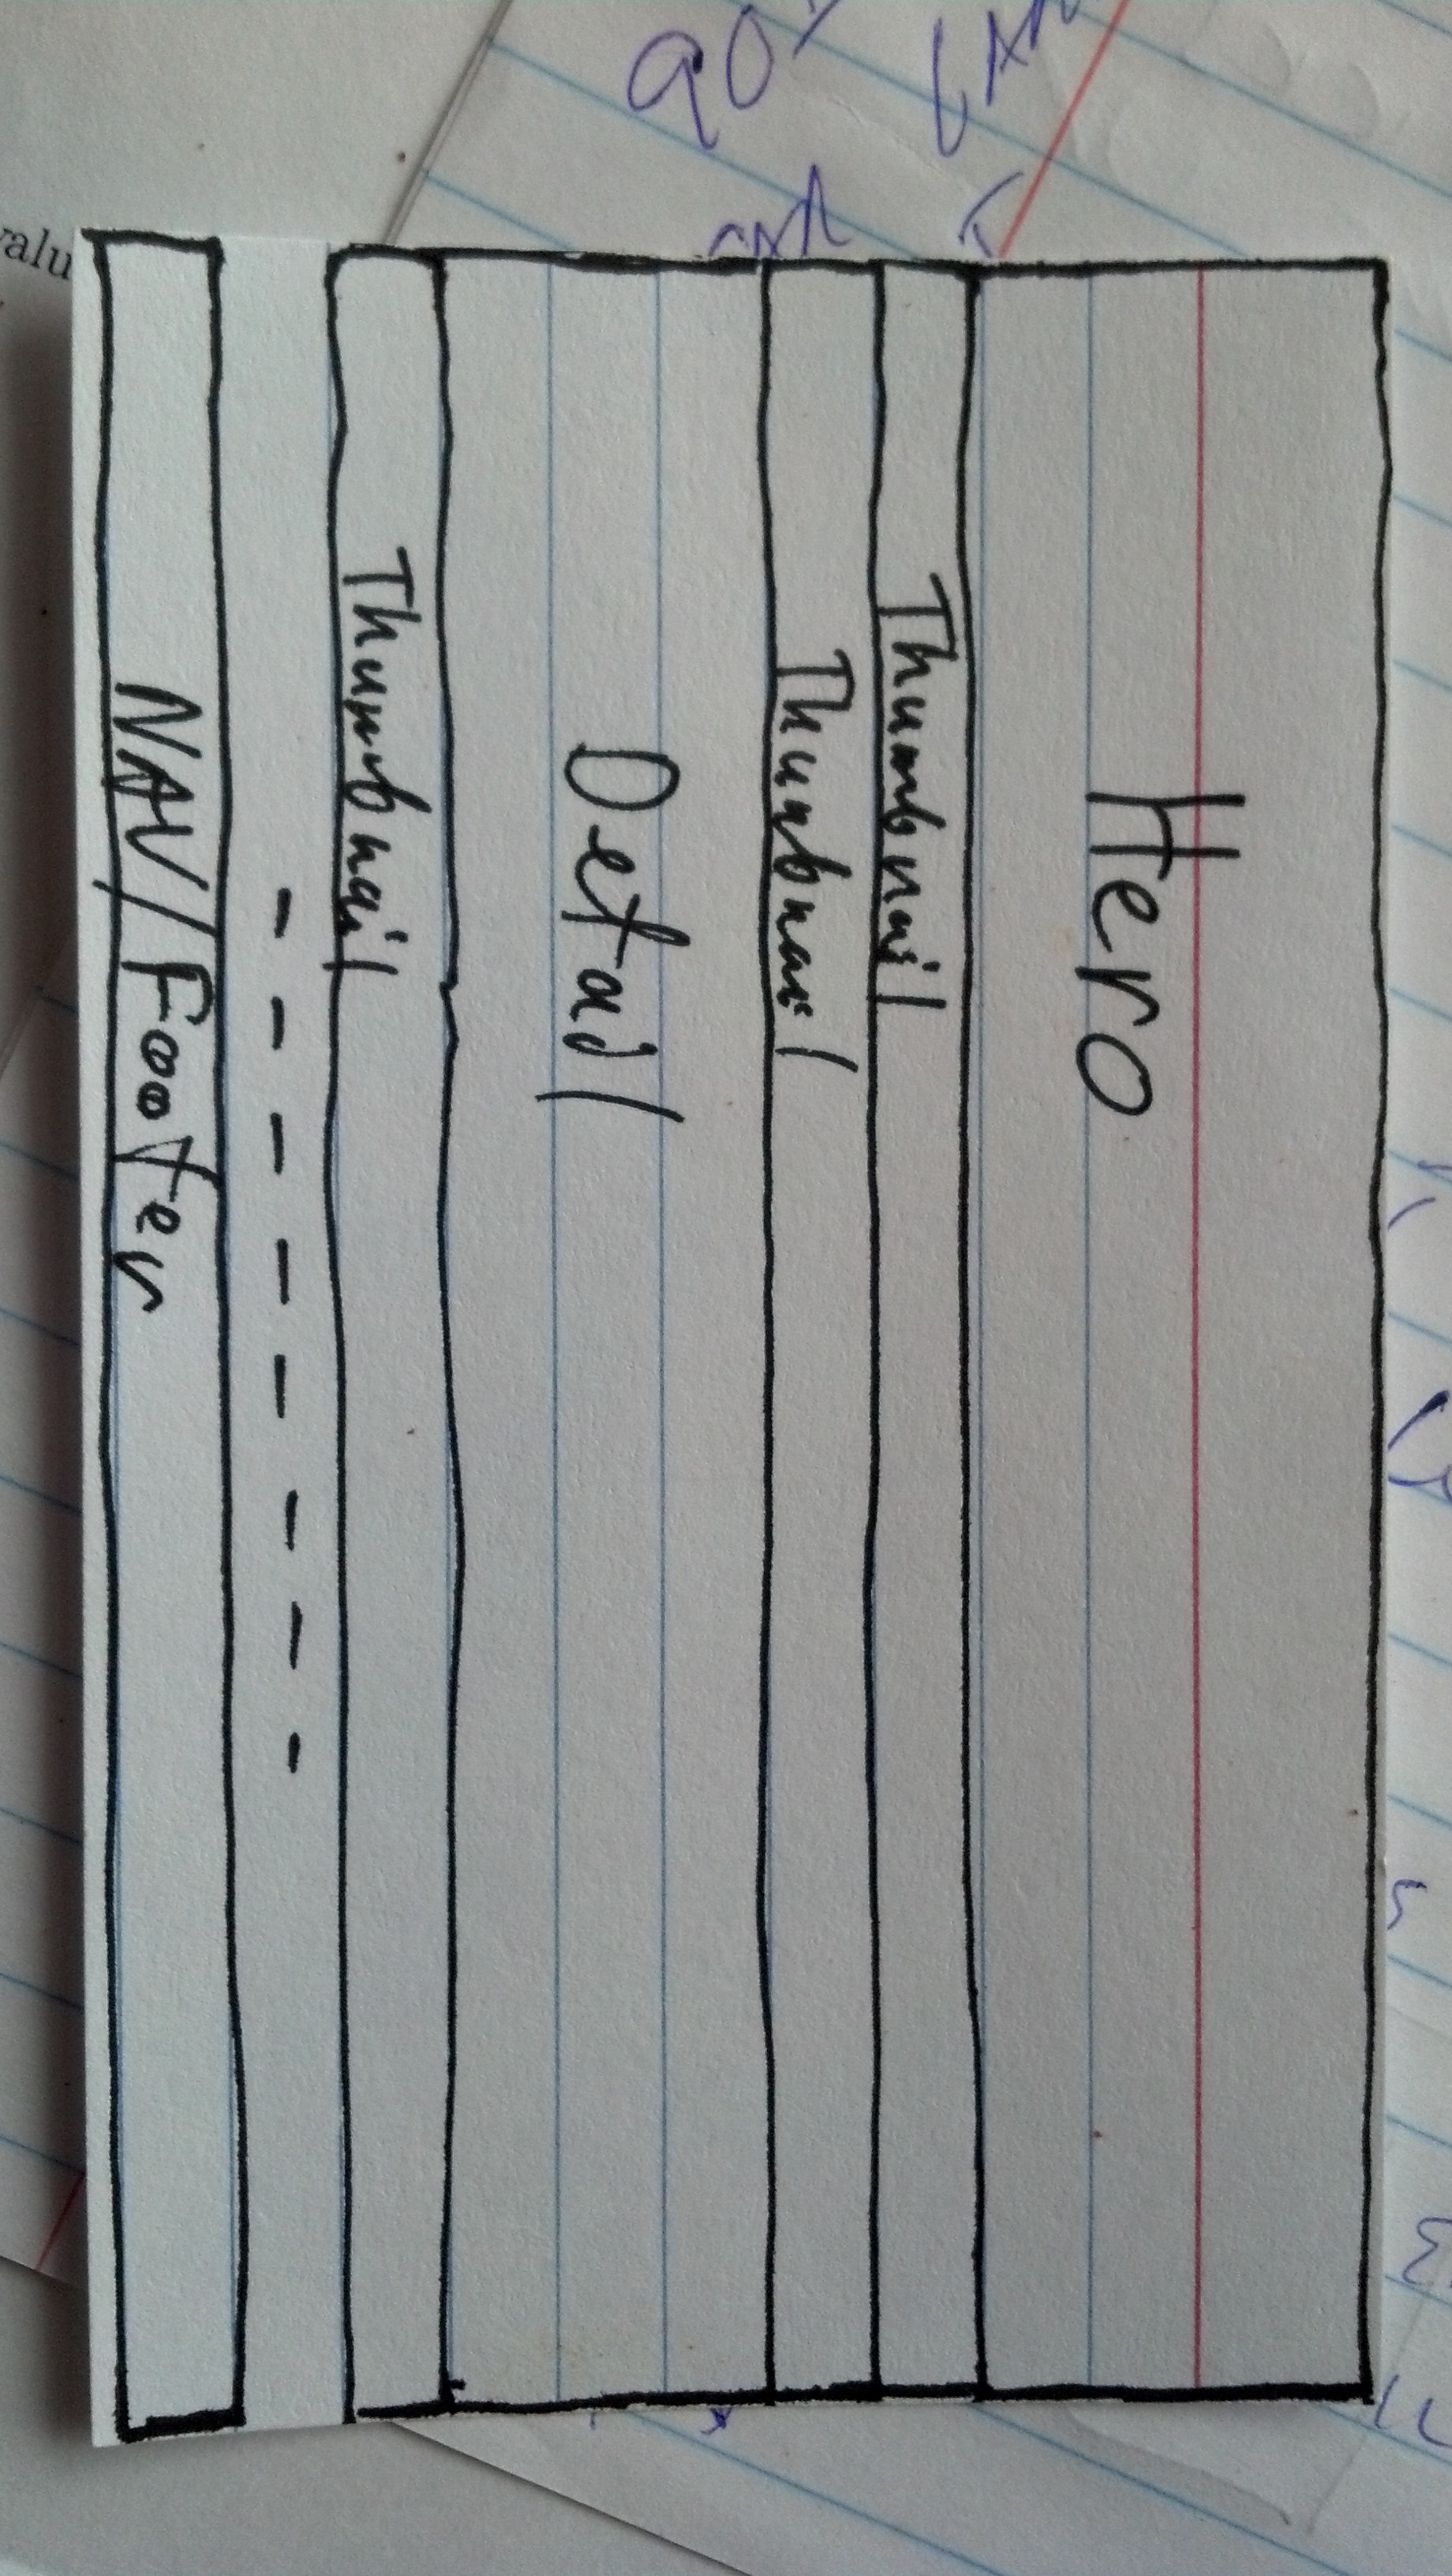 Hero
Thumbnail
Thumbnail
Detail
Thumbnail
NAV/Footer
valu
90